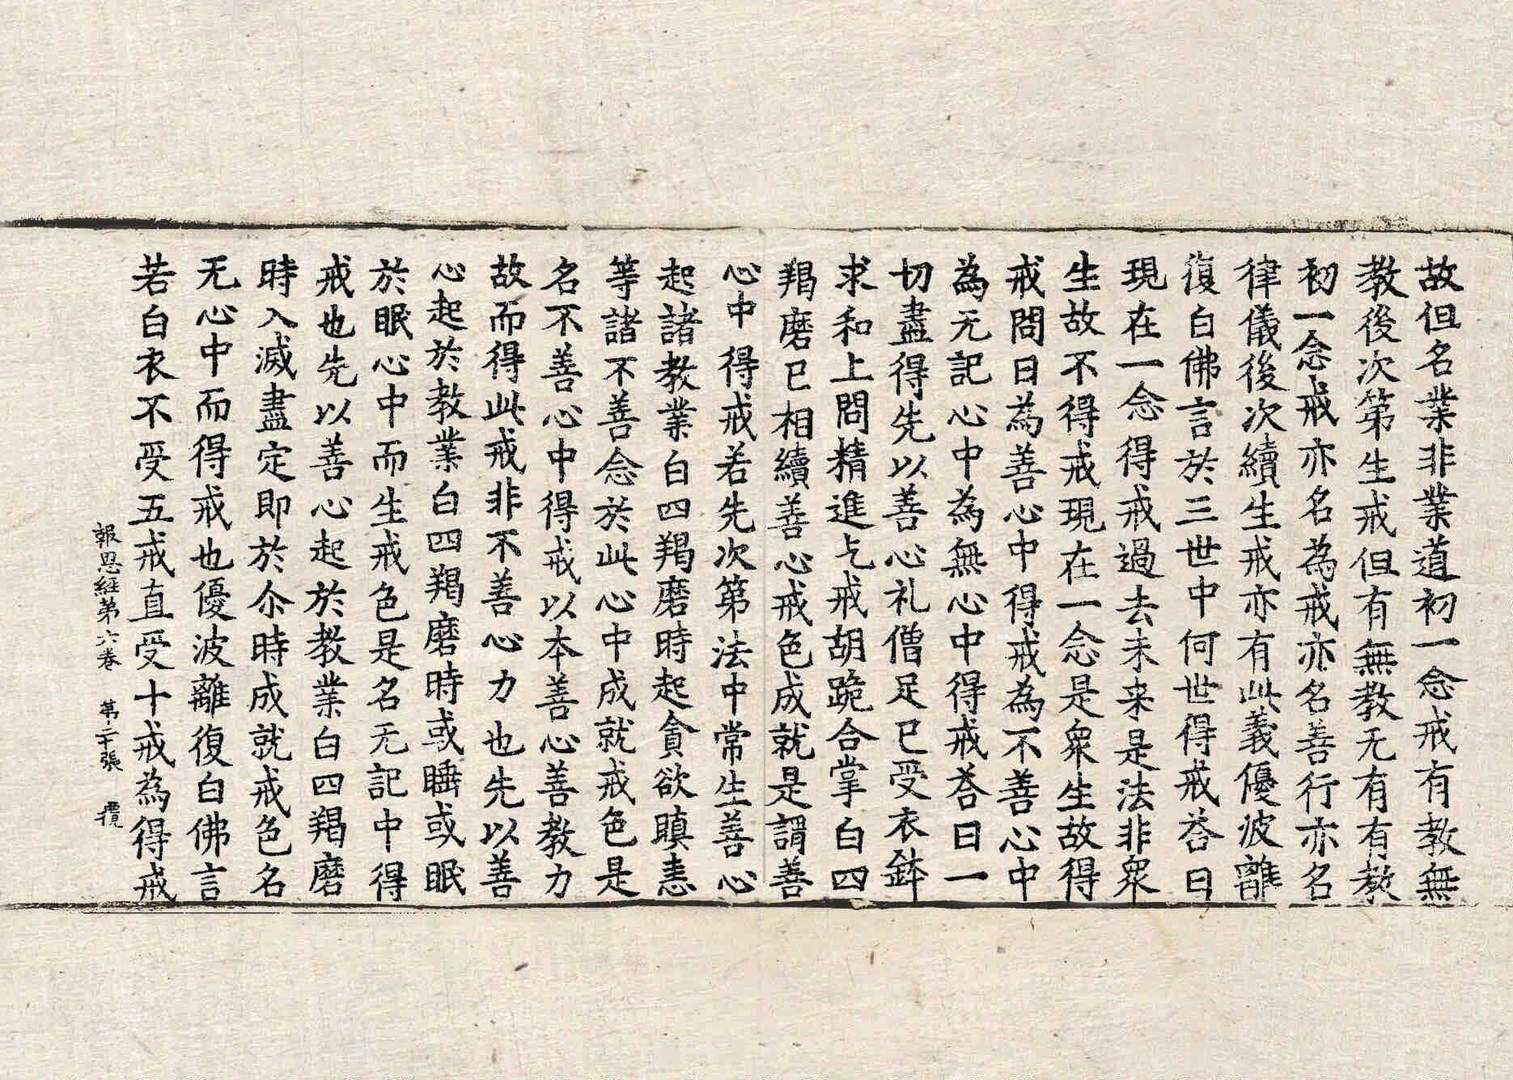 故但名業非業道初一念戒有教無
教後次第生戒但有無教无有有教
初一念戒亦名為戒亦名善行亦名
律儀後次續生戒亦有此義優波離
復白佛言於三世中何世得戒荅曰
現在一念得戒過去未来是法非衆
生故不得戒現在一念是衆生故得
戒問曰為善心中得戒為不善心中
為无記心中為無心中得戒荅曰一
切盡得先以善心礼僧足已受衣鉢
求和上問精進乞戒胡跪合掌白四
羯磨已相續善心戒色成就是謂善
心中得戒若先次第法中常生善心
起諸教業白四羯磨時起貪欲瞋恚
等諸不善念於此心中成就戒色是
名不善心中得戒以本善心善教力
故而得此戒非不善心力也先以善
心起於教業白四羯磨時或睡或眠
於眠心中而生戒色是名无記中得
戒也先以善心起於教業白四羯磨
時入滅盡定即於尒時成就戒色名
无心中而得戒也優波離復白佛言
若白衣不受五戒直受十戒為得戒
報恩經第六卷 第二十張